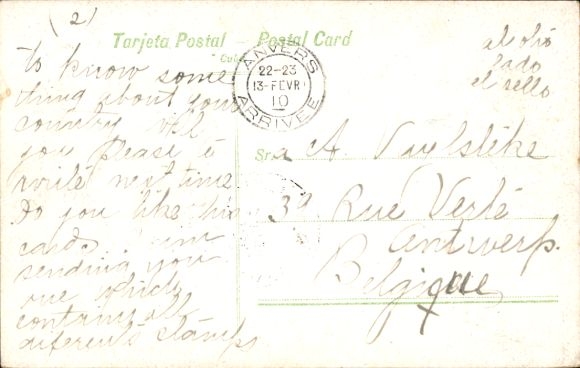 (2)
Tarjeta Postal — Postal Card
al otro
lado
el sello
ANVERS
22-23
13-FEVR
10
ARRIVÉE
to know some
thing about your
country. Will
you please
write next time
Do you like this
cards.
sending you
one which
contains all
diferents stamps
Sra A.
3a Rue Verte
Antwerp.
Belgique